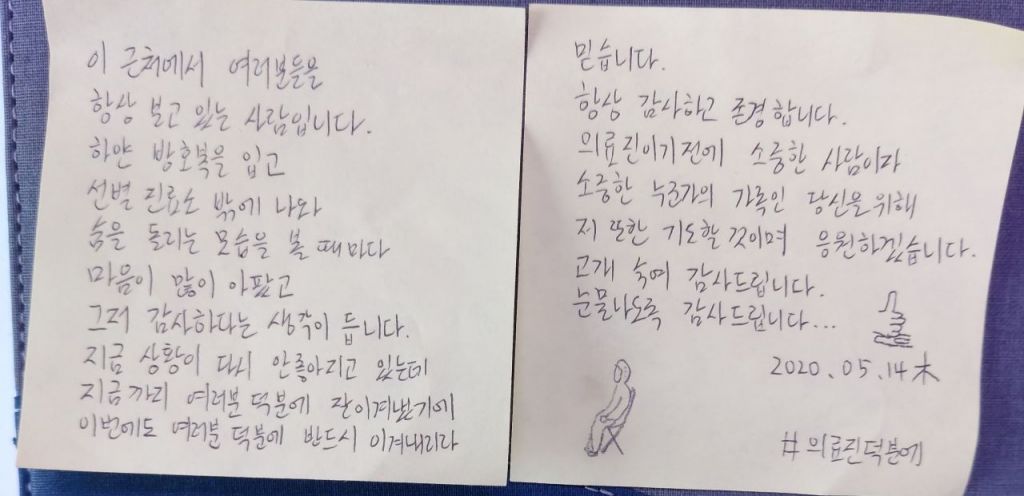 이 근처에서 여러분들을
항상 보고 있는 사람입니다.
하얀 방호복을 입고
선별 진료소 밖에 나와
숨을 돌리는 모습을 볼 때마다
마음이 많이 아팠고
그저 감사하다는 생각이 듭니다.
지금 상황이 다시 안좋아지고 있는데
지금까지 여러분 덕분에 잘이겨냈기에
이번에도 여러분 덕분에 반드시 이겨내리라
믿습니다.
항상 감사하고 존경합니다.
의료진이기전에 소중한 사람이자
소중한 누군가의 가족인 당신을위해
저 또한 기도할것이며 응원하겠습니다.
고개 숙여 감사드립니다.
눈물나도록 감사드립니다...
2020.05.14木
#의료진덕분에